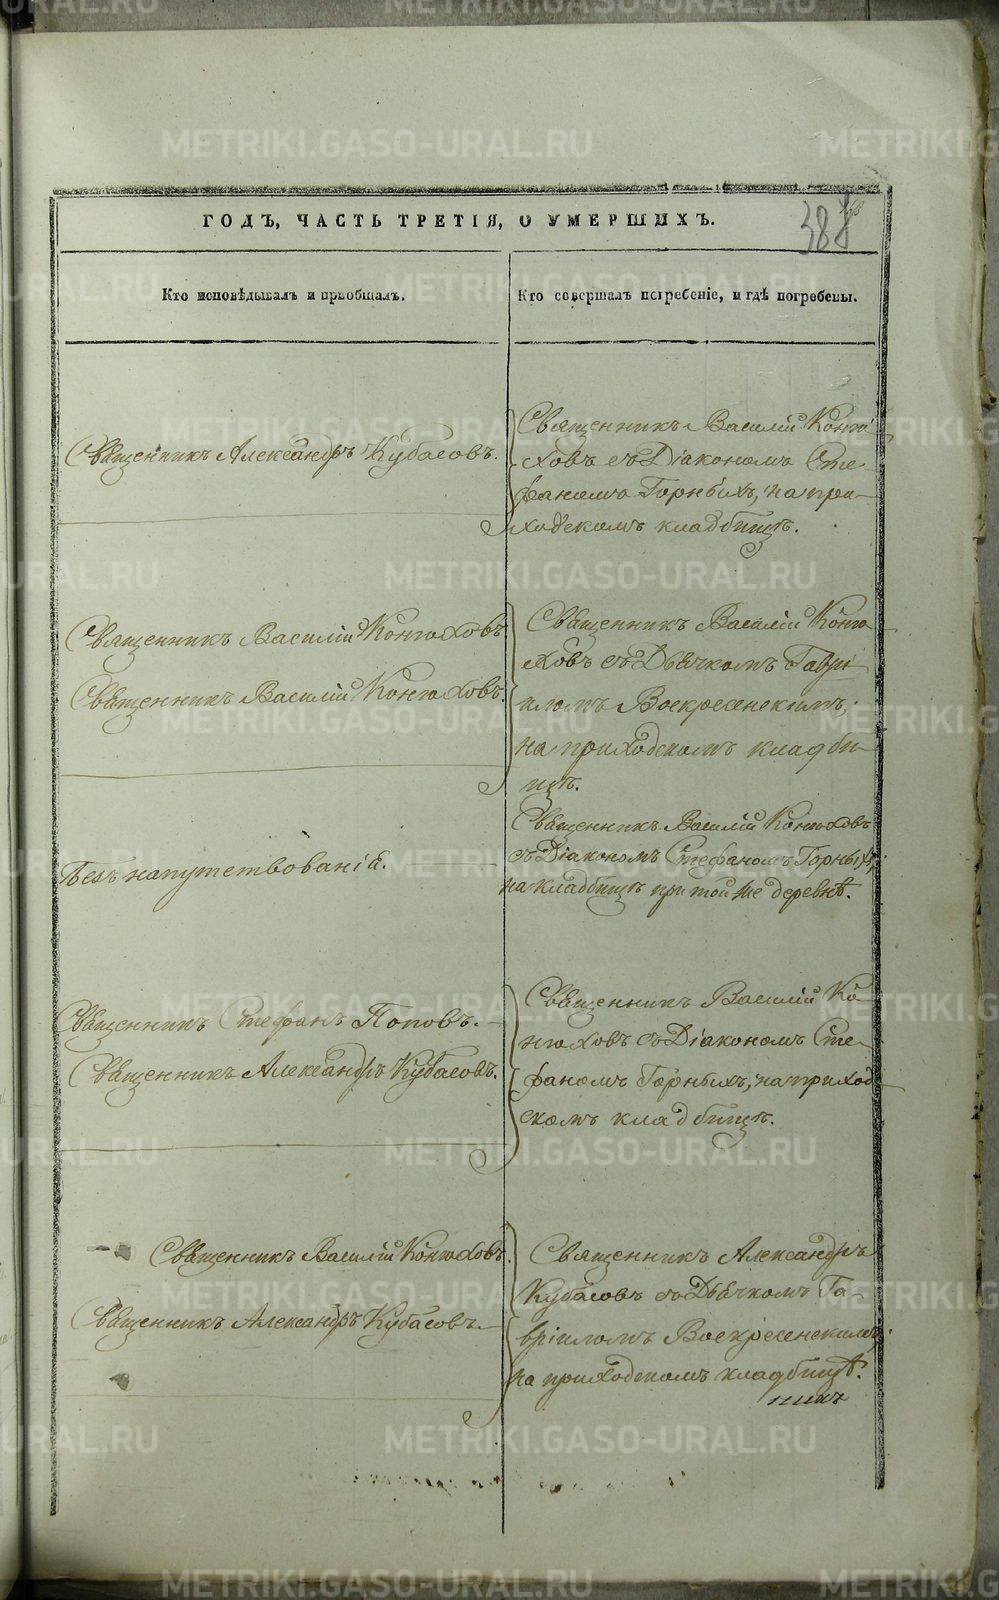 ГОДЪ, ЧАСТЬ ТРЕТІЯ, О УМЕРШИХЪ.
388
Кто исповѣдывалъ и пріобщалъ.
Кто совершалъ погребеніе, и гдѣ погребены.
Священникъ Александръ Кубасовъ.
Священникъ Василій Коню-
ховъ съ Діакономъ Сте-
фаномъ Горныхъ, на при-
ходскомъ кладбищѣ.
Священникъ Василій Конюховъ
Священникъ Василій Конюховъ.
Священникъ Василій Коню-
ховъ съ Дьячкомъ Гаврі-
иломъ Воскресенскимъ,
на приходскомъ кладби-
щѣ.
Безъ напутствованія.
Священникъ Василій Конюховъ
съ Діакономъ Стефаномъ Горныхъ,
на кладбищѣ при той же деревнѣ.
Священникъ Стефанъ Поповъ.
Священникъ Александръ Кубасовъ.
Священникъ Василій Ко-
нюховъ съ Діакономъ Сте-
фаномъ Горныхъ, на приход-
скомъ кладбищѣ.
Священникъ Василій Конюховъ.
Священникъ Александръ Кубасовъ.
Священникъ Александръ
Кубасовъ съ Дьячкомъ Га-
вріиломъ Воскресенскимъ,
на приходскомъ кладбищѣ.
никъ
METRIKI.GASO-URAL.RU